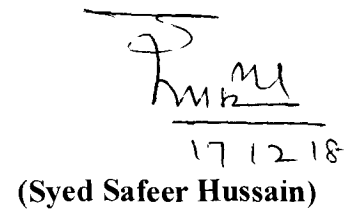 17 12 18
(Syed Safeer Hussain)